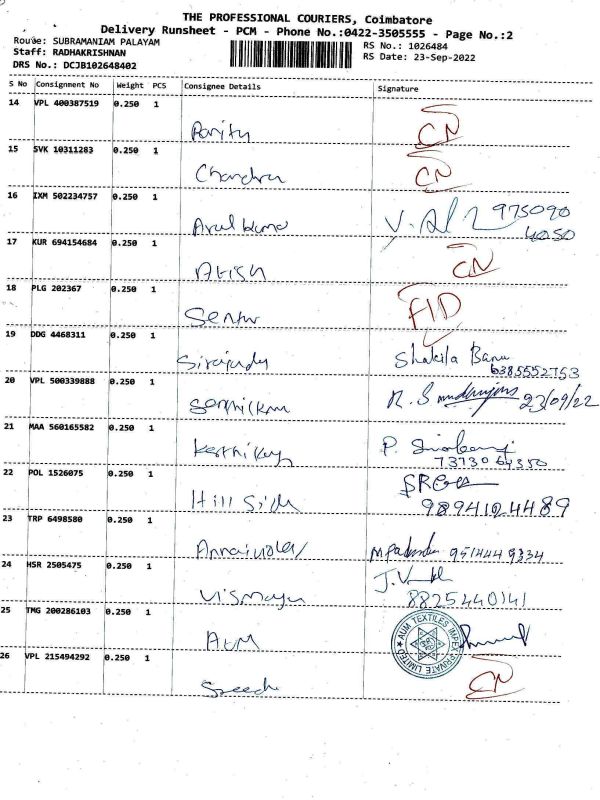 THE PROFESSIONAL COURIERS, Coimbatore
Delivery Runsheet - PCM - Phone No.:0422-3505555 - Page No.:2
Route: SUBRAMANIAM PALAYAM
RS No.: 1026484
Staff: RADHAKRISHNAN
RS Date: 23-Sep-2022
DRS No.: DCJB102648402
S No Consignment No Weight PCS Consignee Details Signature
14 VPL 400387519 0.250 1
CN
15 SVK 10311283 0.250 1
Chandra CN
16 IXM 502234757 0.250 1
Arul Kumar 975090
4050
17 KUR 694154684 0.250 1
Atish CN
18 PLG 202367 0.250 1
FID
19 DDG 4468311 0.250 1
Shakila Banu
6385552753
20 VPL 500339888 0.250 1
23/09/22
21 MAA 560165582 0.250 1
22 POL 1526075 0.250 1
Hill Side 9894124489
23 TRP 6498580 0.250 1
24 HSR 2505475 0.250 1
Vismaya 8825440141
25 TMG 200286103 0.250 1
AUM
AUM TEXTILES IMPEX PRIVATE LIMITED
26 VPL 215494292 0.250 1
CN